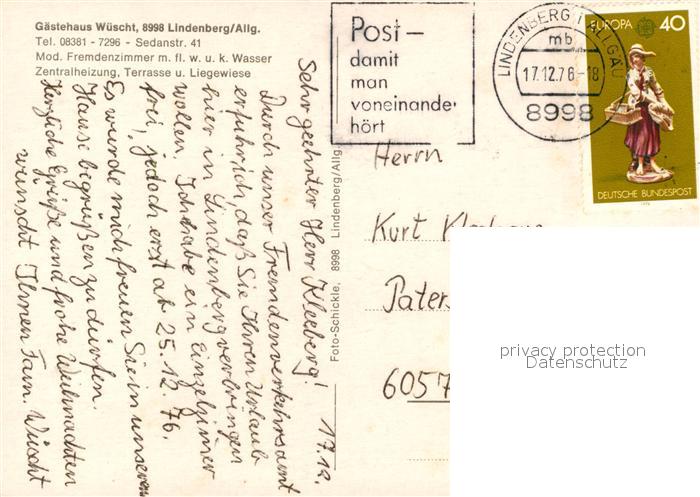 Gästehaus Wüscht, 8998 Lindenberg/Allg.
Tel. 08381 - 7296 - Sedanstr. 41
Mod. Fremdenzimmer m. fl. w. u. k. Wasser
Zentralheizung, Terrasse u. Liegewiese
Post –
damit
man
voneinander
hört
LINDENBERG I ALLGÄU
mb
17.12.76-18
8998
EUROPA 40
DEUTSCHE BUNDESPOST
17.12.
Sehr geehrter Herr Kleeberg!
Durch unser Fremdenverkehrsamt
erfuhr ich, daß Sie Ihren Urlaub
hier in Lindenberg verbringen
wollen. Ich habe ein Einzelzimer
frei, jedoch erst ab 25.12.76.
Es würde mich freuen Sie in unserem
Hause begrüßen zu dürfen.
Herzliche Grüße und frohe Weihnachten
wünscht Ihnen Fam. Wüscht
Foto-Schickle, 8998 Lindenberg/Allg.
Herrn
Kurt
Paters
6057
privacy protection
Datenschutz